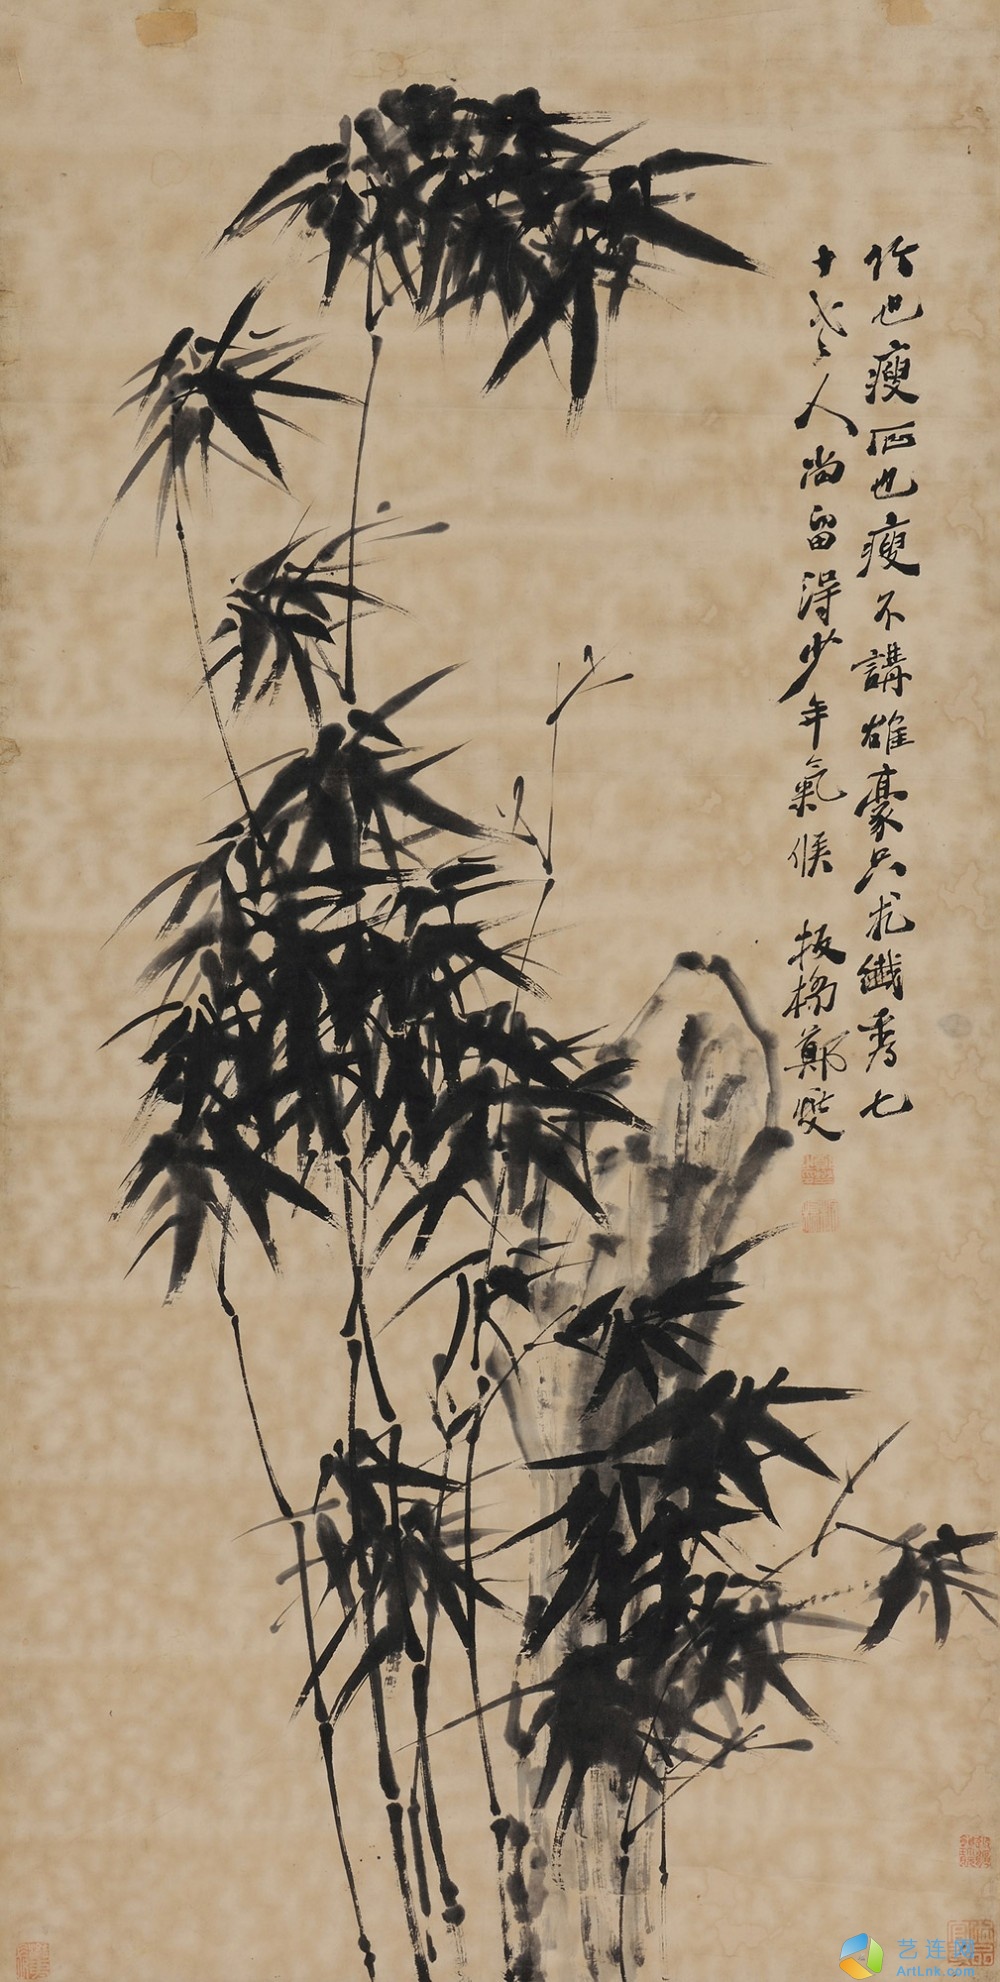 竹也瘦石也瘦不講雄豪只求纖秀七
十老人尚留得少年氣候 板橋鄭燮
艺连网
ArtLnk.com